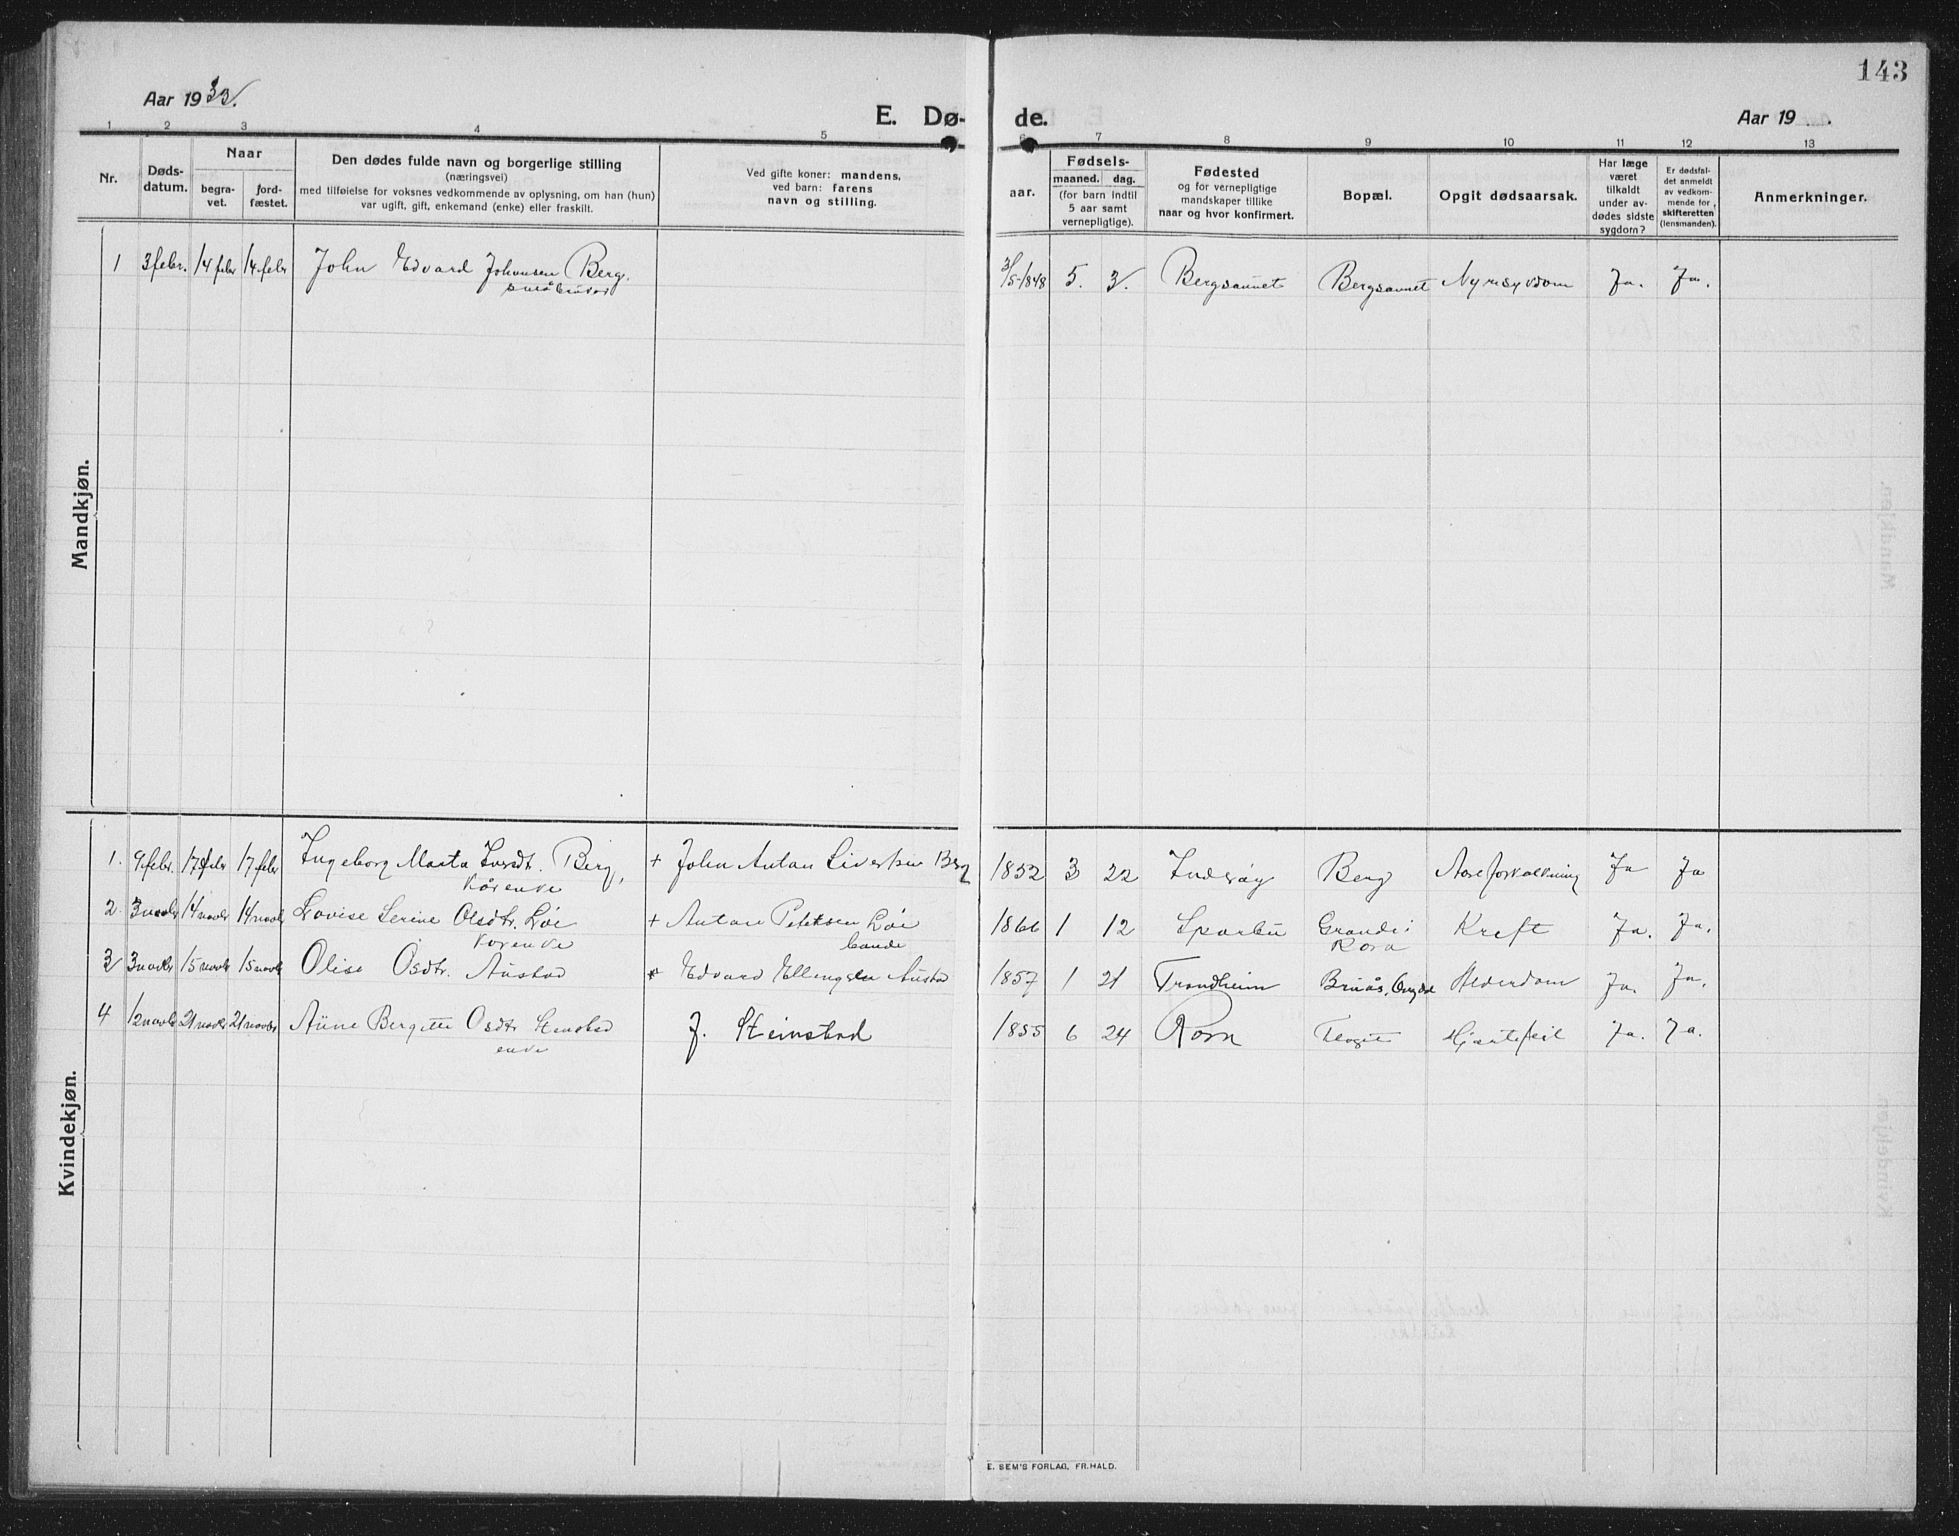 143
Aar 1933.
E. Dø- de.
Aar 19 .
1 2 3 4 5 6 7 8 9 10 11 12 13
Nr.
Døds-
datum.
Naar
begra-
vet.
ford-
fæstet.
Den dødes fulde navn og borgerlige stilling
(næringsvei)
med tilføielse for voksnes vedkommende av oplysning, om han (hun)
var ugift, gift, enkemand (enke) eller fraskilt.
Ved gifte koner: mandens,
ved barn: farens
navn og stilling.
aar.
Fødsels-
maaned. dag.
(for barn indtil
5 aar samt
vernepligtige).
Fødested
og for vernepligtige
mandskaper tillike
naar og hvor konfirmert.
Bopæl.
Opgit dødsaarsak.
Har læge
været
tilkaldt
under av-
dødes sidste
sygdom?
Er dødsfal-
det anmeldt
av vedkom-
mende for
skifteretten
(lensmanden).
Anmerkninger.
Mandkjøn.
1 3 febr. 14 febr 14 febr John Edvard Johnnsen Berg. 3/5-1848 5. 3. Bergsaunet Bergsaunet Nyresydom Ja. Ja.
småbruker
Kvindekjøn.
1. 9 febr. 17 febr 17 febr Ingeborg Marta Iversdt. Berg, + John Antan Sivertsen Berg 1852 3 22 Inderøy Berg Aareforkalkning Ja Ja
kårenke
2. 3 novbr 14 novbr 14 novbr Lovise Serine Olsdtr. Løe + Antan Petersen Løe 1866 1 12 Sparbu Grande i Kreft Ja. Ja.
korenke bonde Rora
3 3 novbr 15 novbr 15 novbr Olise Osdtr. Austad * Edvard Ellingsen Austad 1857 1 21 Trondheim Bruås, Alderdom Ja. Ja.
4 12 novbr 21 novbr 21 novbr Anne Bergitte Osdtr Stenstad J. Steinstad 1855 6 24 Rora Hjartefeil Ja. Ja.
enke
E. SEM'S FORLAG, FR.HALD.